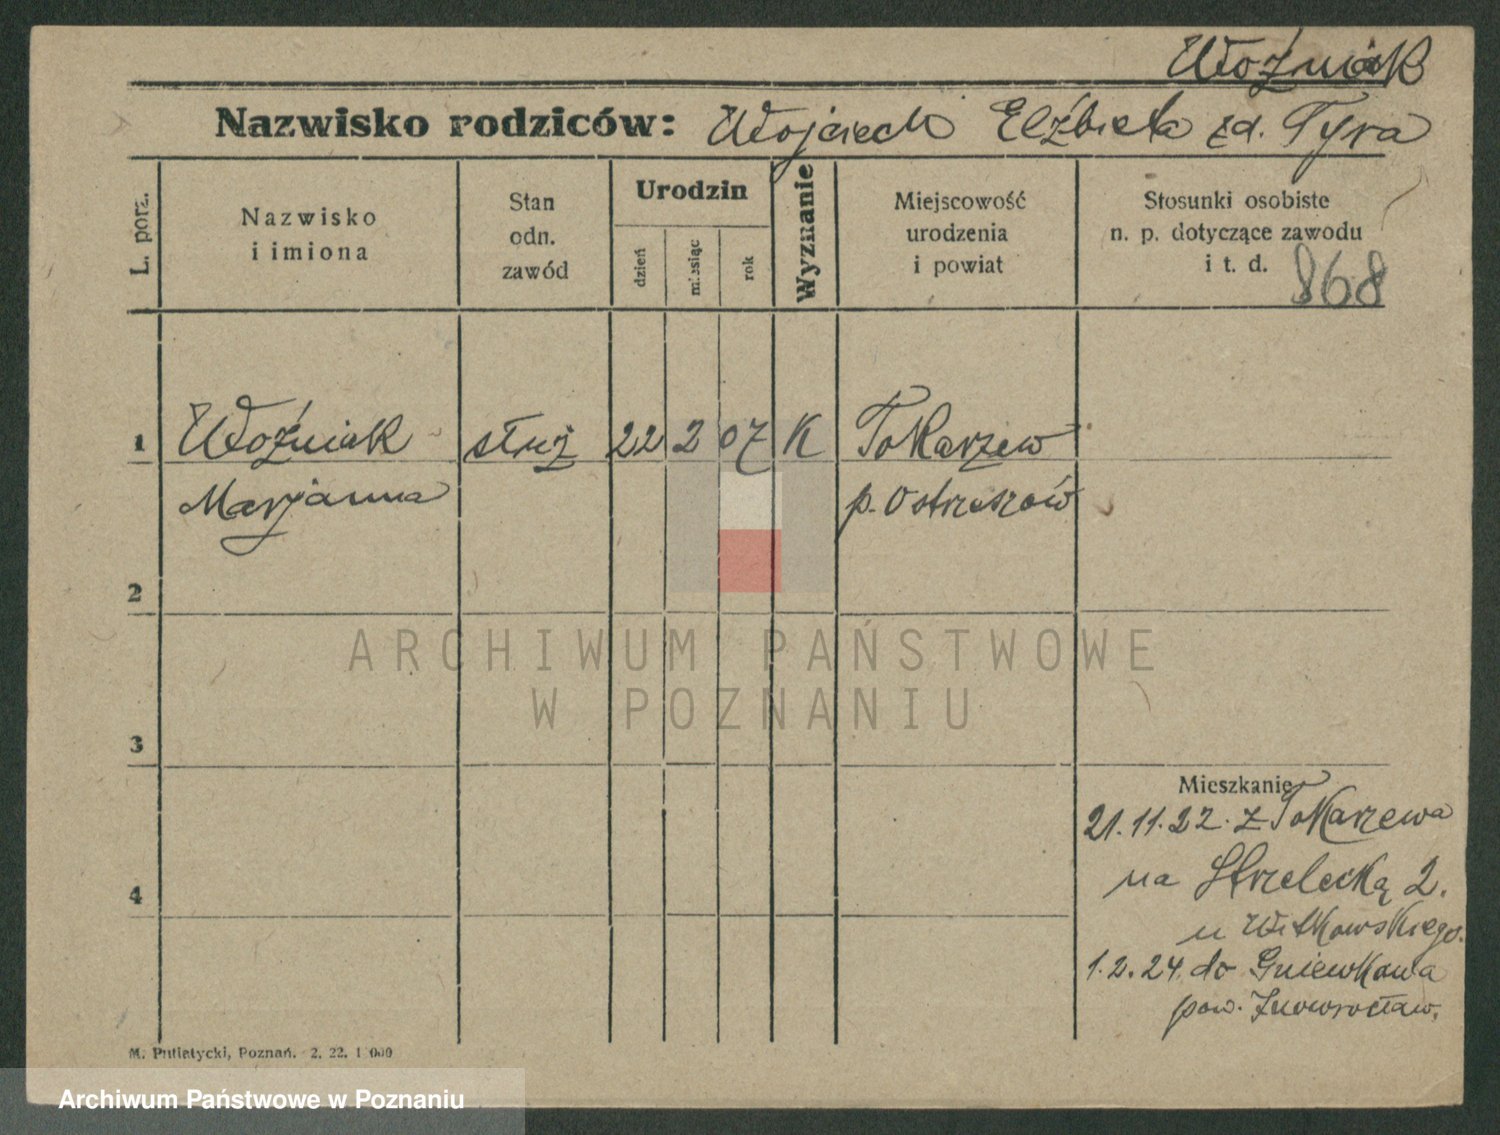 Woźniak
Nazwisko rodziców: Wojciech Elźbieta zd. Tyra
L. porz.
Nazwisko
i imiona
Stan
odn.
zawód
Urodzin
dzień
miesiąc
rok
Wyznanie
Miejscowość
urodzenia
i powiat
Stosunki osobiste
n. p. dotyczące zawodu
i t. d.
868
1 Woźniak służ 22 2 07 K Tokarzew
Marjanna p. Ostrzeszów
2
ARCHIWUM PAŃSTWOWE
W POZNANIU
3
Mieszkanie
21.11.22. z Tokarzewa
4 na Strzelecką 2.
u Witkowskiego.
1.2.24. do Gniewkowa
pow. Inowrocław.
M. Putiatycki, Poznań. 2. 22. 1 000
Archiwum Państwowe w Poznaniu